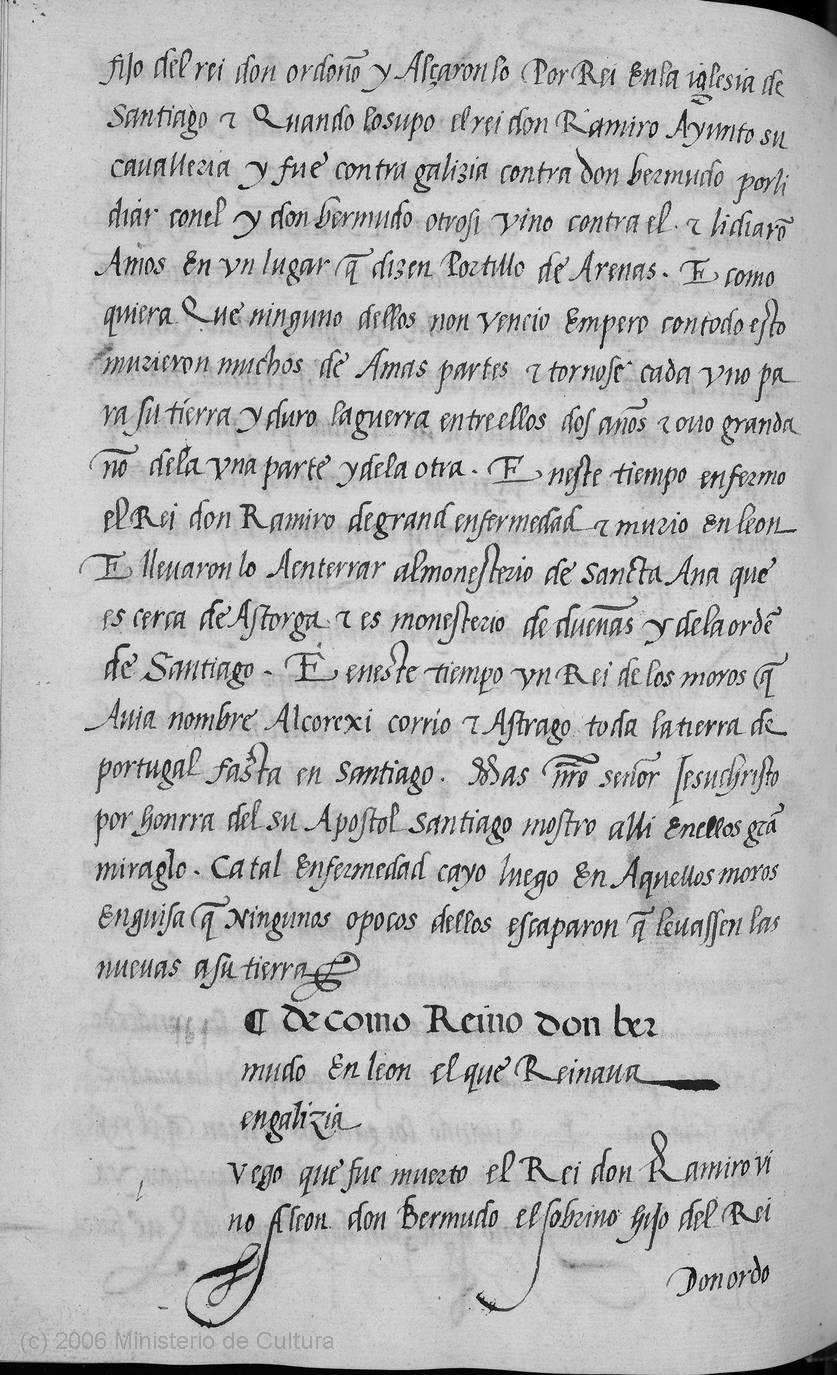 fijo del rei don ordoño y Alçaronlo Por Rei Enla iglesia de
Santiago ⁊ Quando losupo el rei don Ramiro Ayunto su
cavalleria y fue contra galizia contra don bermudo porli
diar conel y don bermudo otrosi vino contra el. ⁊ lidiarõ
Amos En vn lugar q̃ dizen Portillo de Arenas. E como
quiera Que ninguno dellos non vencio Empero contodo esto
murieron muchos de Amas partes ⁊ tornose cada vno pa
ra su tierra y duro laguerra entre ellos dos años ⁊ ouo granda
ño dela vna parte ydela otra. E neste tiempo enfermo
el Rei don Ramiro degrand enfermedad ⁊ murio En leon
E llevaron lo Aenterrar almonesterio de Sancta Ana que
es cerca de Astorga ⁊ es monesterio de dueñas y dela ordẽ
de Santiago. E eneste tiempo vn Rei de los moros q̃
Auia nombre Alcorexi corrio ⁊ Astrago toda la tierra de
portugal fasta en Santiago. Mas nr̃o señor Jesuchristo
por honrra del su Apostol Santiago mostro alli Enellos grã
miraglo. Ca tal Enfermedad cayo luego En Aquellos moros
Enguisa q̃ Ningunos opocos dellos escaparon q̃ levassen las
nuevas asu tierra
¶ de como Reino don ber
mudo En leon el que Reinava
engalizia
vego que fue muerto el Rei don Ramiro vi
no Aleon don Bermudo el sobrino hijo del Rei
Don ordo
(c) 2006 Ministerio de Cultura